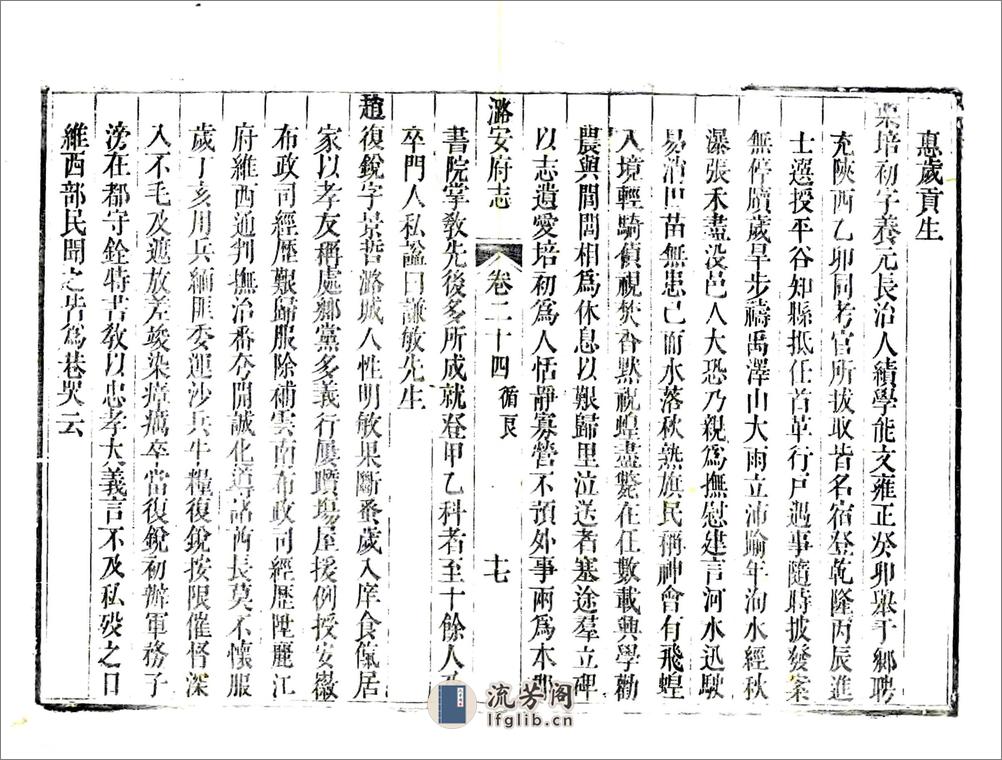 惠歲貢生
栗培初字養元長治人績學能文雍正癸卯舉于鄉聘
充陝西乙卯同考官所拔取皆名宿登乾隆丙辰進
士選授平谷知縣抵任首革行戶遇事隨時披發案
無停牘歲旱步禱禹澤山大雨立沛踰年洵水經秋
瀑張禾盡没邑人大恐乃親爲撫慰建言河水迅駛
易消田苗無患已而水落秋熟旗民稱神會有飛蝗
入境輕騎偵視焚香默祝蝗盡斃在任數載興學勸
農與閭閻相爲休息以艱歸里泣送者塞途羣立碑
以志遺愛培初爲人恬靜寡營不預外事兩爲本郡
潞安府志 卷二十四 循良 十七
書院掌教先後多所成就登甲乙科者至十餘人及
卒門人私謚曰謙敏先生
趙復銳字景哲潞城人性明敏果斷蚤歲入庠食餼居
家以孝友稱處鄉黨多義行屢躓塲屋援例授安徽
布政司經歷艱歸服除補雲南布政司經歷陞麗江
府維西通判撫治番夸開誠化導諸酋長莫不懷服
歲丁亥用兵緬匪委運沙兵牛糧復銳按限催督深
入不毛及遮放差竣染瘴癘卒當復銳初辦軍務子
滂在都守銓特書教以忠孝大義言不及私殁之日
維西部民聞之皆爲巷哭云
流芳阁
lfglib.cn